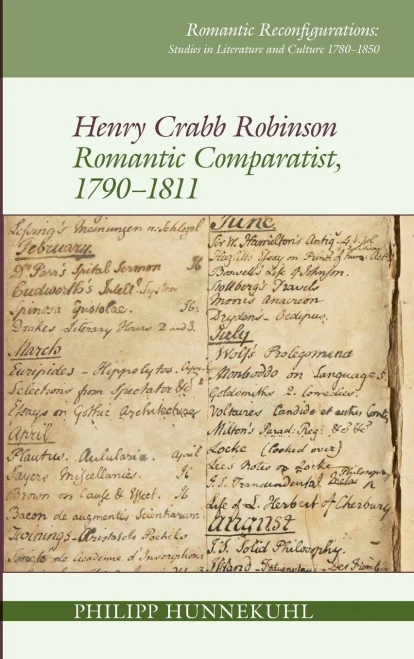 Romantic Reconfigurations:
Studies in Literature and Culture 1780–1850
Henry Crabb Robinson
Romantic Comparatist,
1790–1811
Lessing's Meinungen n. Schlegel
February
Dr Parr's Spital Sermon
Cudworth's Intell. System
Spinosa Epistolae.
Drakes Literary Hours 2 and 3.
March
Euripides – Hippolytos.
Selections from Spectator &c
Essays on Gothic Architecture
April
Plautus. Aulularia. April
Sayers Miscellanies.
Brown on Cause & Effect.
Bacon de augmentis Scientiarum.
Twinings Aristotle's Poeticks
de Academie d'Inscriptions
June
Sir W. Hamilton's Antiq.
Hazlitts Essay on Princ. of hum. Act.
Boswell's Life of Johnson.
Stolberg's Travels
Morris Anacreon
Drydens – Oedipus.
July
Wolf's Prolegomena
Monboddo on Language 5.
Goldsmiths 2. Comedies.
Voltaires Candide et autres Contes
Milton's Parad: Reg: &c &c
Locke (looked over)
Lees Notes on Locke
Transcendental
Philosophy
Life of L. Herbert of Cherbury
August
J.S. Solid Philosophy.
PHILIPP HUNNEKUHL